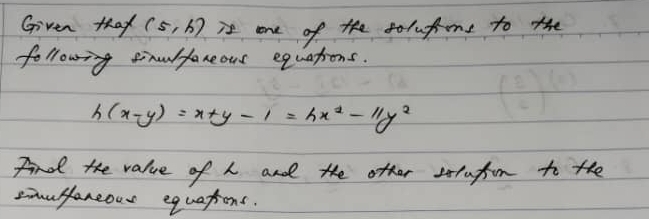 Given that (5, h) is one of the solutions to the
following simultaneous equations.
h(x-y) = x+y - 1 = hx² - 11y²
Find the value of h and the other solution to the
simultaneous equations.